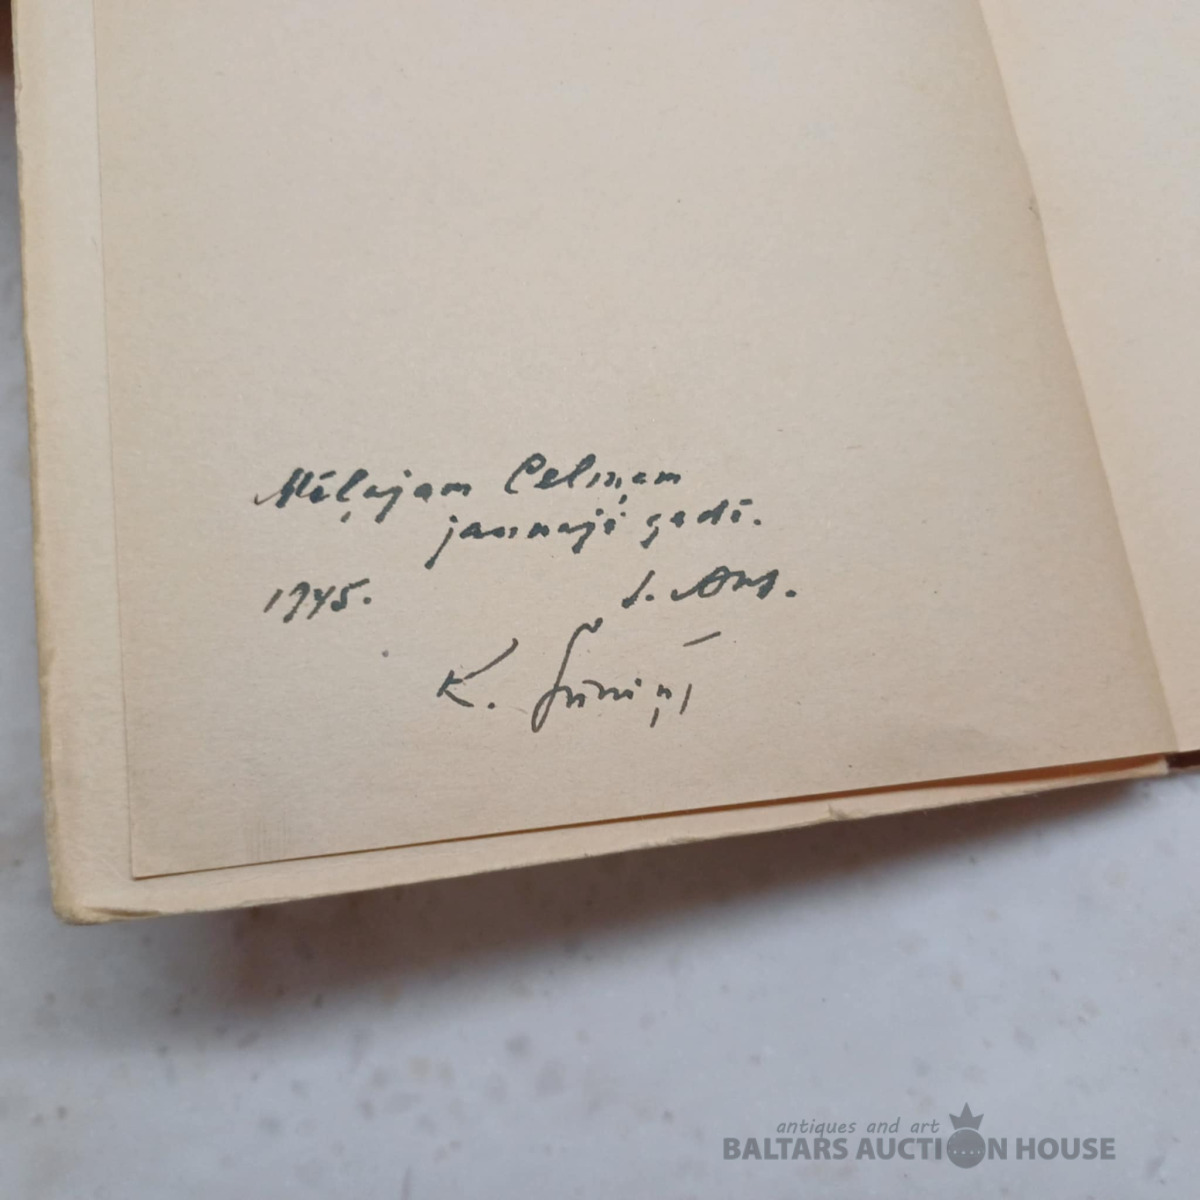 Mēļajam Celmiņam
jaunajā gadā.
1945. J. Ans.
K.
antiques and art
BALTARS AUCTION HOUSE